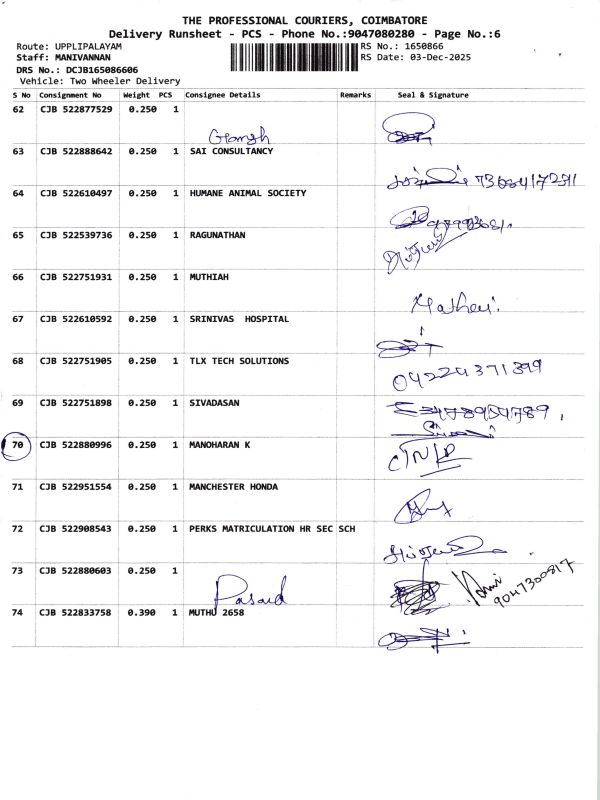 THE PROFESSIONAL COURIERS, COIMBATORE
Delivery Runsheet - PCS - Phone No.:9047080280 - Page No.:6
Route: UPPLIPALAYAM RS No.: 1650866
Staff: MANIVANNAN RS Date: 03-Dec-2025
DRS No.: DCJB165086606
Vehicle: Two Wheeler Delivery
S No Consignment No Weight PCS Consignee Details Remarks Seal & Signature
62 CJB 522877529 0.250 1
63 CJB 522888642 0.250 1 SAI CONSULTANCY
64 CJB 522610497 0.250 1 HUMANE ANIMAL SOCIETY
65 CJB 522539736 0.250 1 RAGUNATHAN
66 CJB 522751931 0.250 1 MUTHIAH
67 CJB 522610592 0.250 1 SRINIVAS HOSPITAL
68 CJB 522751905 0.250 1 TLX TECH SOLUTIONS
04224371399
69 CJB 522751898 0.250 1 SIVADASAN
70 CJB 522880996 0.250 1 MANOHARAN K
71 CJB 522951554 0.250 1 MANCHESTER HONDA
72 CJB 522908543 0.250 1 PERKS MATRICULATION HR SEC SCH
73 CJB 522880603 0.250 1
Pasaud
9047300817
74 CJB 522833758 0.390 1 MUTHU 2658